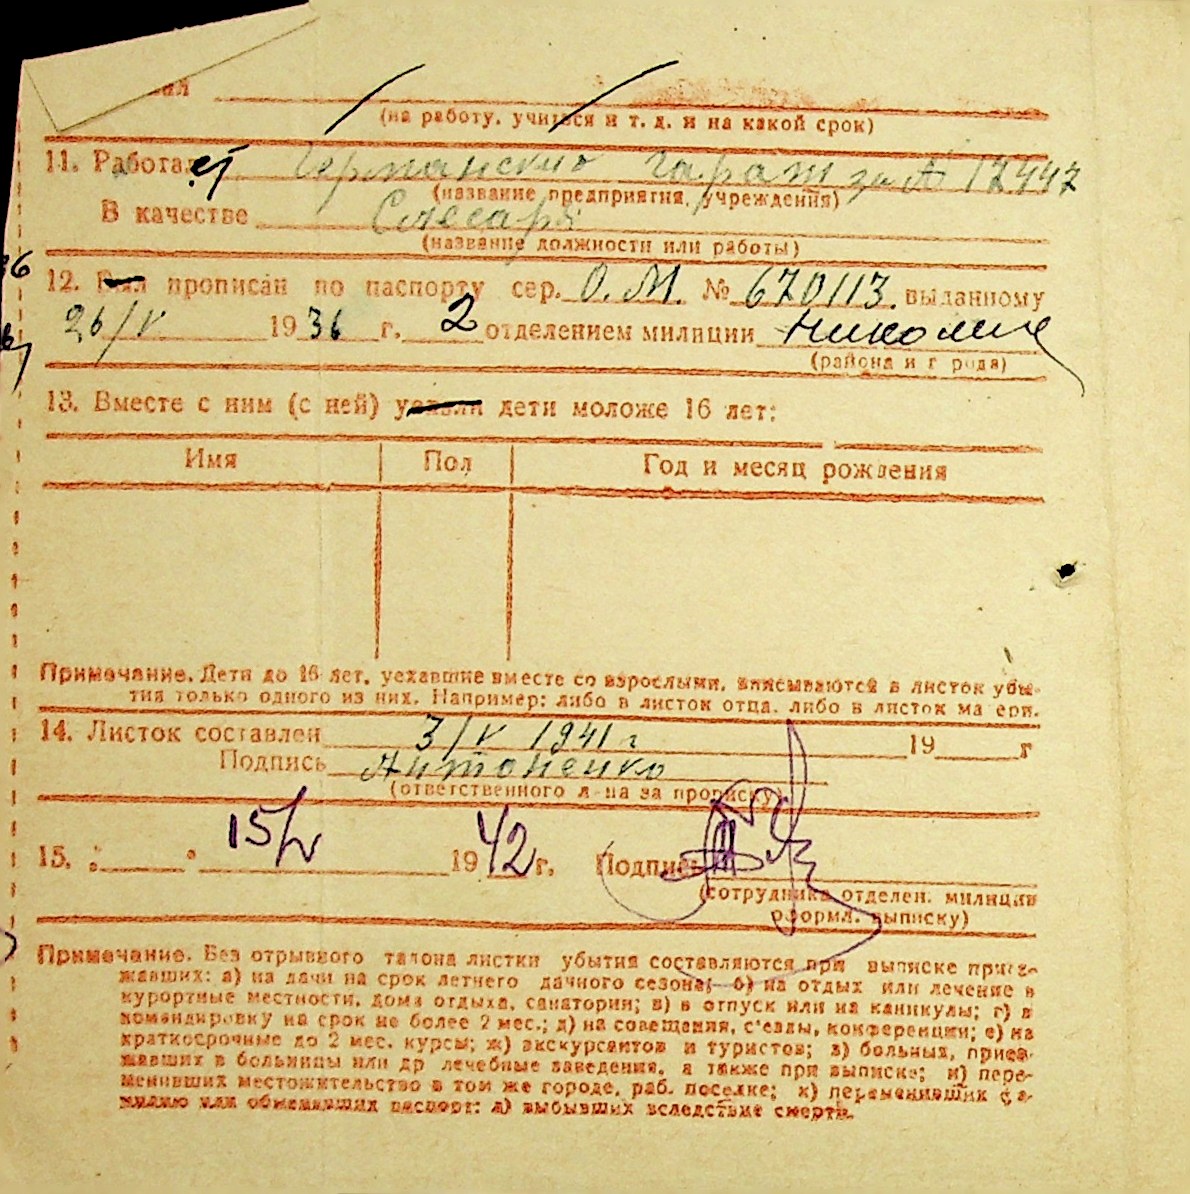 (на работу, учиться и т. д. и на какой срок)
11. Работает Германский гараж за № 12447
(название предприятия, учреждения)
В качестве Слесарь
(название должности или работы)
12. Был прописан по паспорту сер. О.М. № 670113. выданному
26/V 1936 г. 2 отделением милиции
(района и города)
13. Вместе с ним (с ней) уехали дети моложе 16 лет:
Имя Пол Год и месяц рождения
Примечание. Дети до 16 лет, уехавшие вместе со взрослыми, вписываются в листок убы-
тия только одного из них. Например: либо в листок отца, либо в листок матери.
14. Листок составлен 3/V 1941 г 19 г
Подпись Антоненко
(ответственного л-ца за прописку)
15. " " 15/V 1942 г. Подпись
(сотрудника отделен. милиции
оформл. выписку)
Примечание. Без отрывного талона листки убытия составляются при выписке приез-
жавших: а) на дачи на срок летнего дачного сезона; б) на отдых или лечение в
курортные местности, дома отдыха, санатории; в) в отпуск или на каникулы; г) в
командировку на срок не более 2 мес.; д) на совещания, с'езды, конференции; е) на
краткосрочные до 2 мес. курсы; ж) экскурсантов и туристов; з) больных, приез-
жавших в больницы или др лечебные заведения, а также при выписке; и) пере-
менивших местожительство в том же городе, раб. поселке; к) переменивших фа-
милию или обменявших паспорт; л) выбывших вследствие смерти.